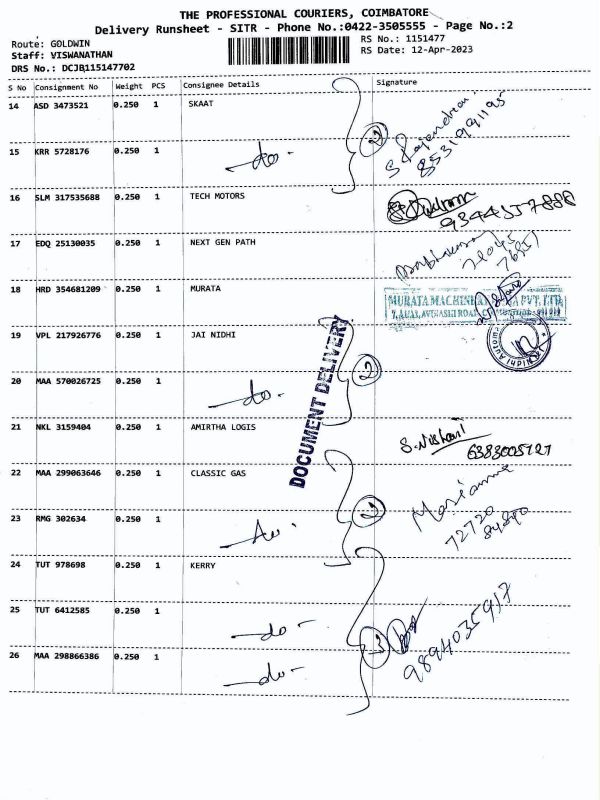 THE PROFESSIONAL COURIERS, COIMBATORE
Delivery Runsheet - SITR - Phone No.:0422-3505555 - Page No.:2
Route: GOLDWIN
RS No.: 1151477
Staff: VISWANATHAN
RS Date: 12-Apr-2023
DRS No.: DCJB115147702
S No Consignment No Weight PCS Consignee Details Signature
14 ASD 3473521 0.250 1 SKAAT
S Rajendran
8531991195
2
15 KRR 5728176 0.250 1 -do-
16 SLM 317535688 0.250 1 TECH MOTORS
9344557888
17 EDQ 25130035 0.250 1 NEXT GEN PATH
Prabhakaran
18 HRD 354681209 0.250 1 MURATA
MURATA MACHINERY INDIA PVT. LTD
19 VPL 217926776 0.250 1 JAI NIDHI
DOCUMENT DELIVERY
2
20 MAA 570026725 0.250 1 -do-
21 NKL 3159404 0.250 1 AMIRTHA LOGIS
S. Nishani
6383005727
22 MAA 299063646 0.250 1 CLASSIC GAS
Mariamma
72720
84840
2
23 RMG 302634 0.250 1 -do-
24 TUT 978698 0.250 1 KERRY
25 TUT 6412585 0.250 1 -do-
3
9894035917
26 MAA 298866386 0.250 1 -do-